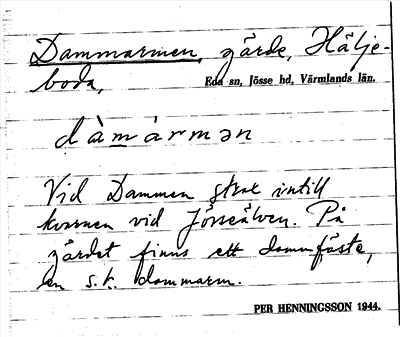 Dammarmen, gärde, Hälje-
boda, Eda sn, Jösse hd, Värmlands län.
dàmármən
Vid Dammen strax intill
kvarnen vid Jösseälven. På
gärdet finns ett dammfäste,
en s.k. dammarm.
PER HENNINGSSON 1944.